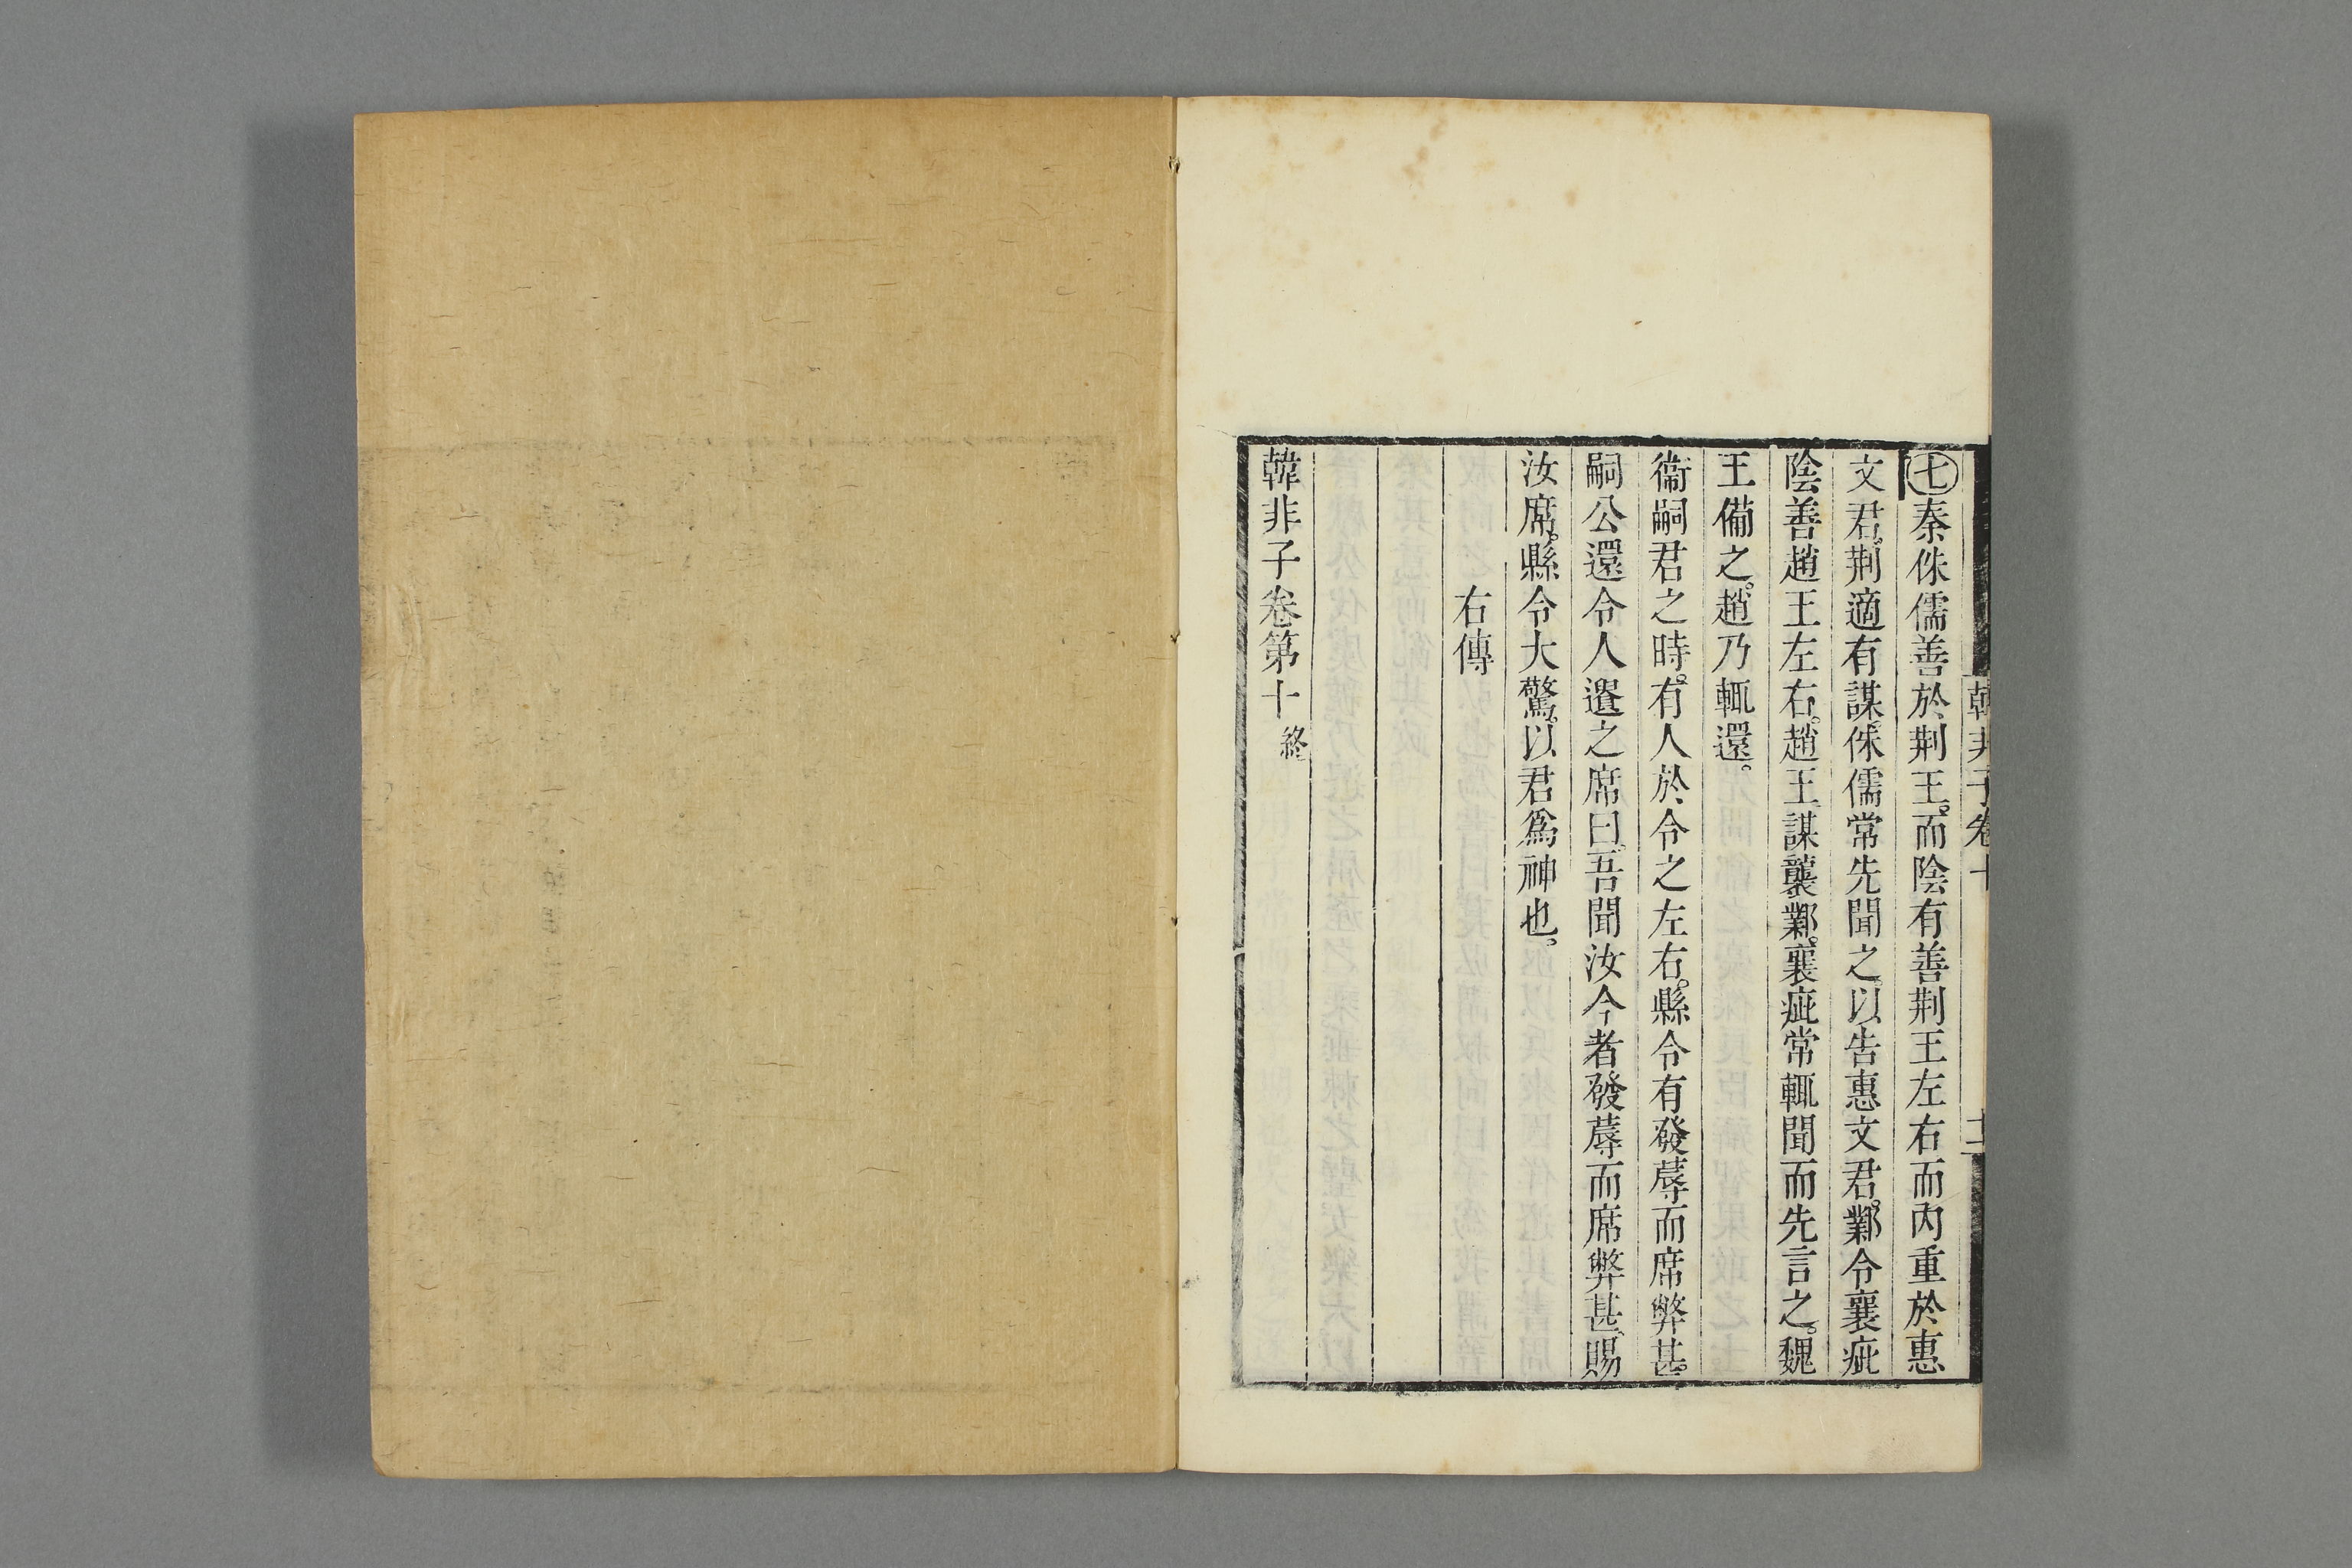 韓非子卷十
十二
㊆秦侏儒善於荆王。而陰有善荆王左右而内重於惠
文君。荆適有謀。侏儒常先聞之。以告惠文君。鄴令襄疵
陰善趙王左右。趙王謀襲鄴。襄疵常輒聞而先言之。魏
王備之。趙乃輒還。
衞嗣君之時。有人於令之左右。縣令有發蓐而席弊甚。
嗣公還令人遺之席曰。吾聞汝今者發蓐而席弊甚。賜
汝席。縣令大驚。以君爲神也。
右傳
韓非子卷第十 終